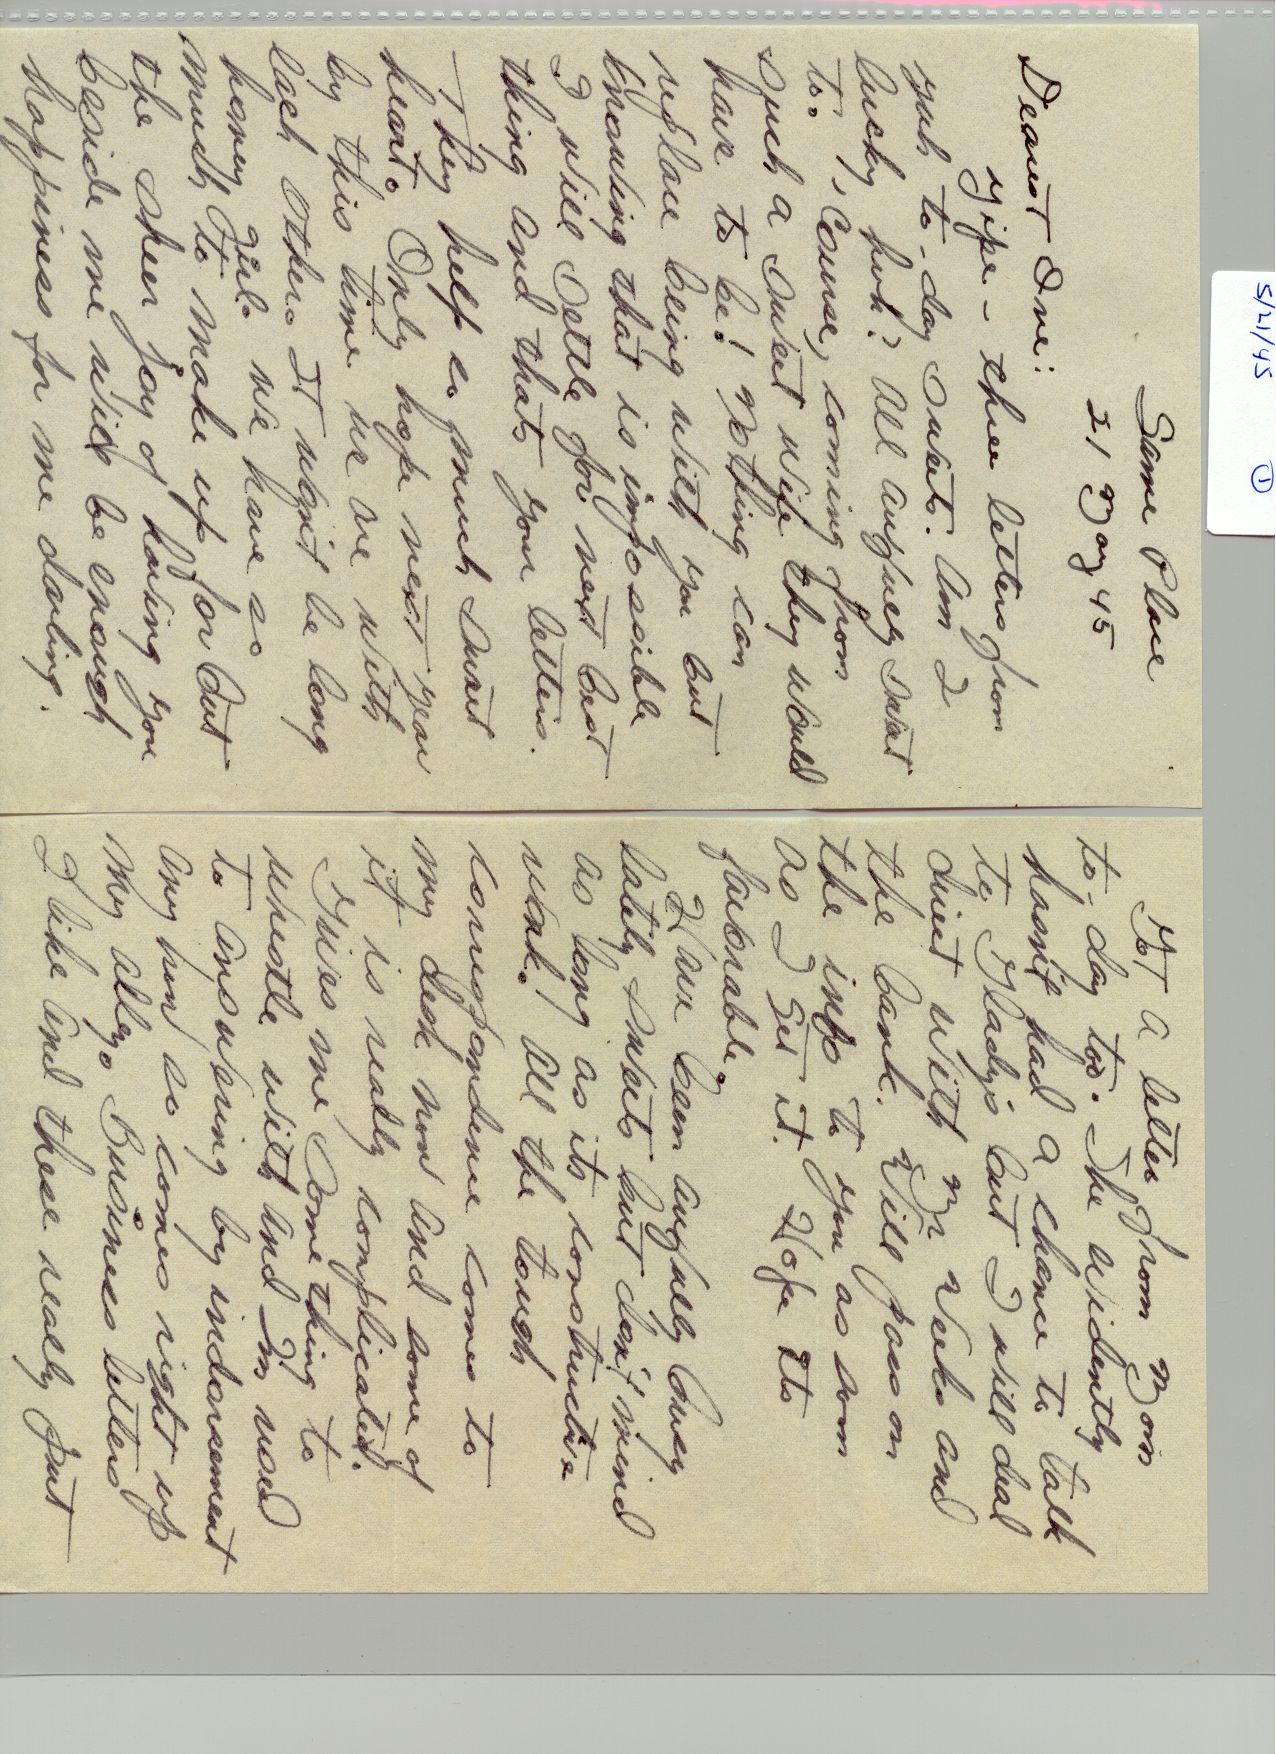 5/21/45 ①
Same Place
21 May 45
Dearest One:
Yipe - three letters from
yuh to-day sweets. Am I
lucky, huh? All awfuly sweet
to. Course, coming from
such a sweet wife they would
have to be! Nothing can
replace being with you but
knowing that is impossible
I will settle for next best
thing and thats your letters.
They help so much sweet
heart. Only hope next year
by this time we are with
each other. It wont be long
honey girl. We have so
much to make up for but
the sheer joy of having you
beside me will be enough
happiness for me darling.
Got a letter from Mom
to-day too. She evidently
hasnt had a chance to talk
to Gladys but I will deal
direct with Mr Weeks and
the bank. Will pass on
the info to you as soon
as I get it. Hope its
favorable.
Have been awfully busy
lately sweets but don't mind
as long as its constructive
work! All the tough
correspondence comes to
my desk now and some of
it is really complicated.
Gives me something to
wrestle with and I'm used
to answering by indorsement
any how so comes right up
my alley. Business letters
I like and these really put